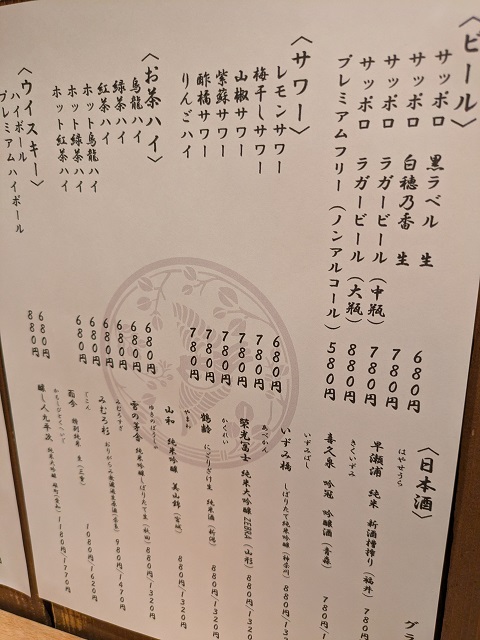 〈ビール〉
サッポロ 黒ラベル 生 680円
サッポロ 白穂乃香 生 780円
サッポロ ラガービール(中瓶) 780円
サッポロ ラガービール(大瓶) 880円
プレミアムフリー(ノンアルコール) 580円
〈サワー〉
レモンサワー 680円
梅干しサワー 780円
山椒サワー 780円
紫蘇サワー 780円
酢橘サワー 780円
りんごハイ 780円
〈お茶ハイ〉
烏龍ハイ 680円
緑茶ハイ 680円
紅茶ハイ 680円
ホット烏龍ハイ 680円
ホット緑茶ハイ 680円
ホット紅茶ハイ 680円
〈ウイスキー〉
ハイボール 680円
プレミアムハイボール 880円
〈日本酒〉
グラ
はやせうら
早瀬浦 純米 新酒槽搾り(福井) 780円
きくいずみ
喜久泉 吟冠 吟醸酒(青森) 780円/1
いずみばし
いずみ橋 しぼりたて純米吟醸(神奈川) 880円/1
あべかん
榮光冨士 純米大吟醸 ZEBRA(山形) 880円/1320
かくれい
鶴齢 にごりざけ生 純米酒(新潟) 880円/1320円
やまわ
山和 純米吟醸 美山錦(宮城) 880円/1320円
ゆきのぼうしゃ
雪の茅舎 純米吟醸しぼりたて生(秋田) 880円/1320円
みむろすぎ
みむろ杉 980円/1470円
雨季 特別純米 生(三重) 1080円/1620円
かもしびとくへいじ
醸し人九平次 純米大吟醸 1180円/1770円